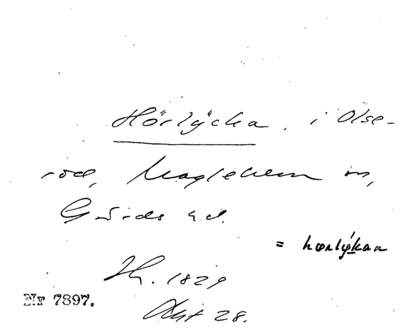 Hörlÿcka, i Olse-
röd, Maglehem sn,
Gärds hd.
= hœrlýkan
Nr 7897.
Akt 28.